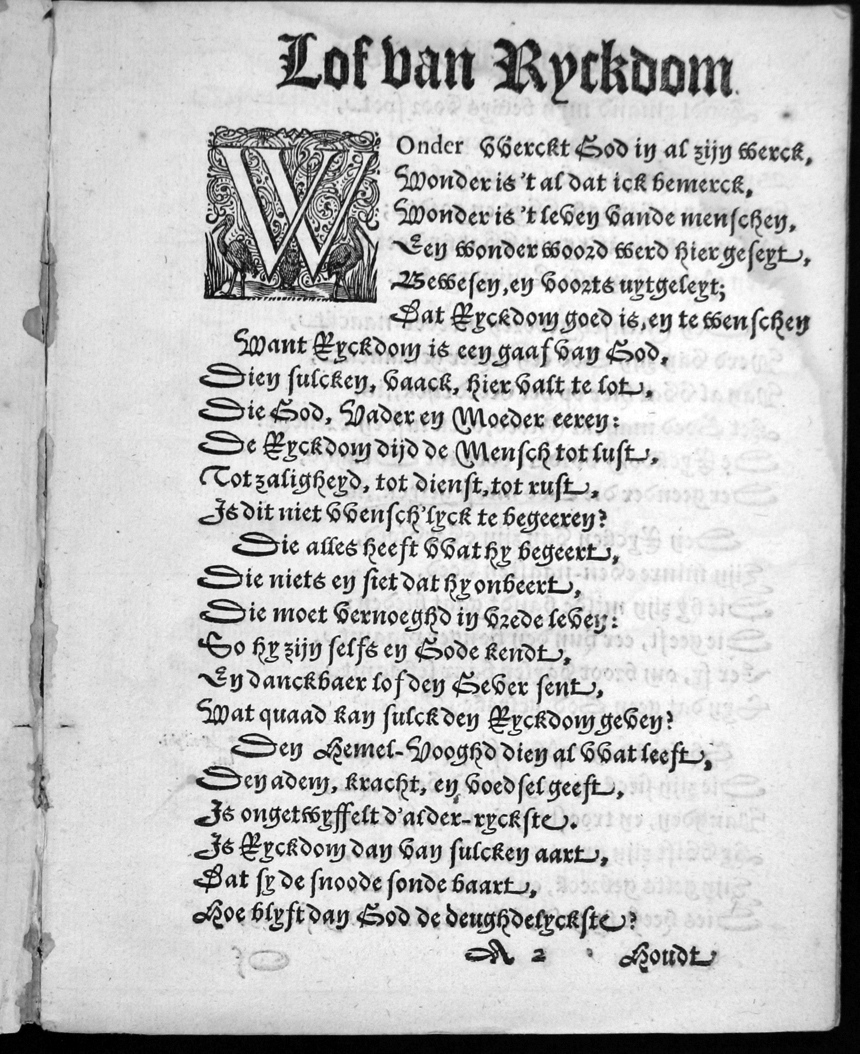 Lof van Ryckdom.
WOnder VVerckt God in al zijn werck,
Wonder is 't al dat ick bemerck,
Wonder is 't leven vande menschen,
Een wonder woord werd hier geseyt,
Bewesen, en voorts uytgeleyt;
Dat Ryckdom goed is, en te wenschen
Want Ryckdom is een gaaf van God,
Dien sulcken, vaack, hier valt te lot,
Die God, Vader en Moeder eeren:
De Ryckdom dijd de Mensch tot lust,
Tot zaligheyd, tot dienst, tot rust,
Is dit niet VVensch'lyck te begeeren?
Die alles heeft VVat hy begeert,
Die niets en siet dat hy onbeert,
Die moet vernoeghd in vrede leven:
So hy zijn selfs en Gode kendt,
En danckbaer lof den Gever sent,
Wat quaad kan sulck den Ryckdom geven?
Den Hemel-Vooghd dien al VVat leeft,
Den adem, kracht, en voedsel geeft,
Is ongetwyffelt d'alder-ryckste.
Is Ryckdom dan van sulcken aart,
Dat sy de snoode sonde baart,
Hoe blyft dan God de deughdelyckste?
A 2 Houdt